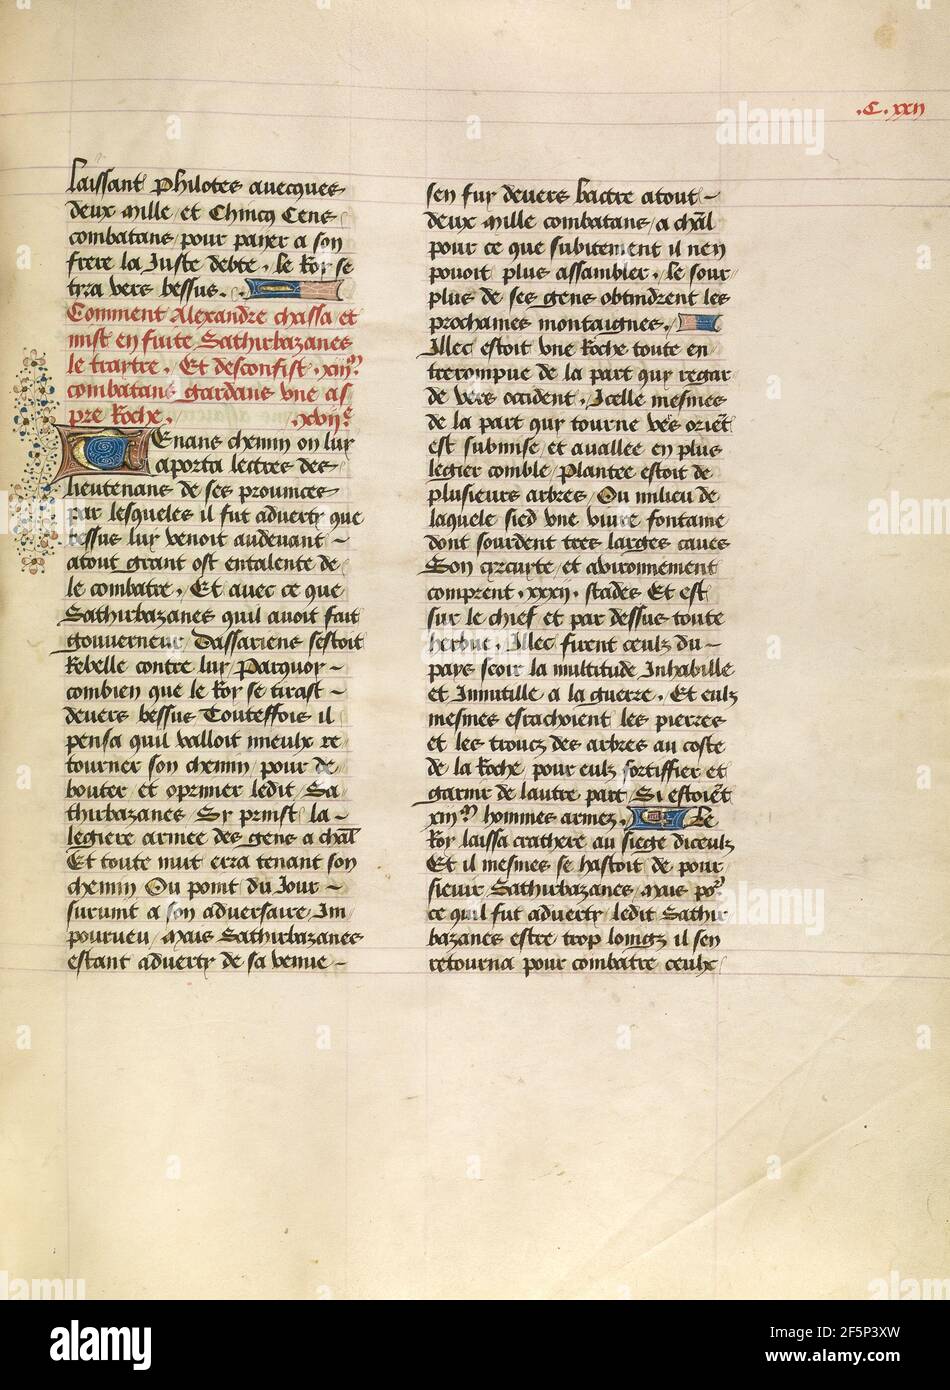 .C. xxij
laissant Philotes auecques
deux Mille / et Chincq Cens
combatans / pour payer a son
frere la Juste debte . le Roy se
tyra vers bessus .
Comment Alexandre chassa et
mist en fuite Sathirbazanes
le traytre . Et desconfist . xiijm
combatans gardans vne as
pre Roche . xvije
Tenans chemin on luy
aporta lectres des
lieutenans de ses prouinces
par lesqueles il fut aduerty que
bessus luy venoit audeuant -
atout grant ost entalente de
le combatre . Et auec ce que
Sathirbazanes quil auoit fait
gouuerneur Dassariens sestoit
Rebelle contre luy / Parquoy -
combien que le Roy se tirast -
deuers bessus Touteffois il
pensa quil valloit mieulx re
tourner son chemin / pour de
bouter et oprimer ledit Sa
thirbazanes / Sy prinst la -
legiere armee des gens a chãl
Et toute nuit erra tenant son
chemin / Ou point du Jour -
suruint a son aduersaire Im
pourueu / Mais Sathirbazanes
estant aduerty de sa venue -
sen fuy deuers bactre atout -
deux mille combatans / a chãl
pour ce que subitement il nen
pouoit plus assambler . le sour
plus de ses gens obtindrent les
prochaines montaignes .
Illec estoit vne Roche toute en
trerompue de la part quy regar
de vers occident . Icelle mesmes
de la part quy tourne vẽs oriẽt
est submise et auallee en plus
legier comble / Plantee estoit de
plusieurs arbres / Ou milieu de
laquele sied vne viuve fontaine
dont sourdent tres larges eaues
Son cyrcuyte / et avironnement
comprent . xxxij . stades Et est
sur le chief et par dessus toute
herbue . Illec firent ceulz du -
pays seoir la multitude Inhabille
et Inmutille a la guerre . Et eulz
mesmes esrachoient les pierres
et les troncz des arbres au coste
de la Roche / pour eulz fortiffier et
garnir de lautre part / Si estoiẽt
xiijm hommes armez . Le
Roy laissa crathere au siege diceulz
Et il mesmes se hastoit de pour
sieuir Sathirbazanes / Mais por
ce quil fut aduerty ledit Sathir
bazanes estre trop loingz il sen
retourna pour combatre ceulx
alamy
Image ID: 2F5P3XW
www.alamy.com